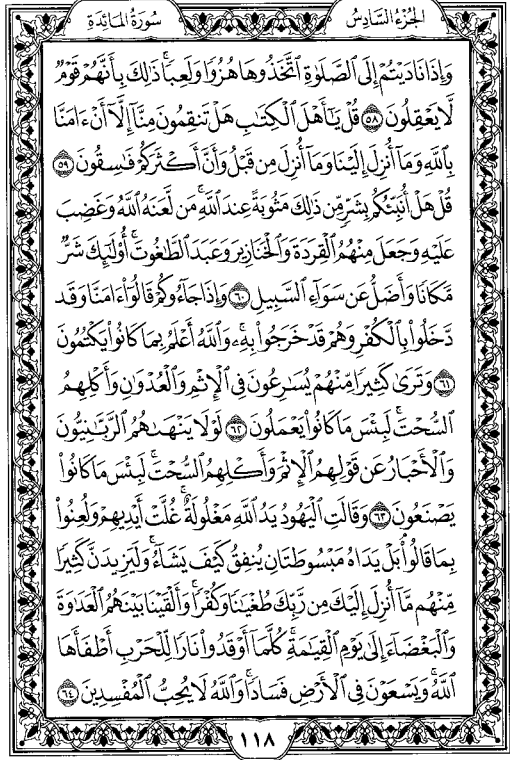 الجزء السادس
سورة المائدة
وَإِذَا نَادَيْتُمْ إِلَى ٱلصَّلَوٰةِ ٱتَّخَذُوهَا هُزُوًا وَلَعِبًاۚ ذَٰلِكَ بِأَنَّهُمْ قَوْمٌ
لَّا يَعْقِلُونَ ٥٨ قُلْ يَٰٓأَهْلَ ٱلْكِتَٰبِ هَلْ تَنقِمُونَ مِنَّآ إِلَّآ أَنْ ءَامَنَّا
بِٱللَّهِ وَمَآ أُنزِلَ إِلَيْنَا وَمَآ أُنزِلَ مِن قَبْلُ وَأَنَّ أَكْثَرَكُمْ فَٰسِقُونَ ٥٩
قُلْ هَلْ أُنَبِّئُكُم بِشَرٍّ مِّن ذَٰلِكَ مَثُوبَةً عِندَ ٱللَّهِۚ مَن لَّعَنَهُ ٱللَّهُ وَغَضِبَ
عَلَيْهِ وَجَعَلَ مِنْهُمُ ٱلْقِرَدَةَ وَٱلْخَنَازِيرَ وَعَبَدَ ٱلطَّٰغُوتَۚ أُو۟لَٰٓئِكَ شَرٌّ
مَّكَانًا وَأَضَلُّ عَن سَوَآءِ ٱلسَّبِيلِ ٦٠ وَإِذَا جَآءُوكُمْ قَالُوٓا۟ ءَامَنَّا وَقَد
دَّخَلُوا۟ بِٱلْكُفْرِ وَهُمْ قَدْ خَرَجُوا۟ بِهِۦۚ وَٱللَّهُ أَعْلَمُ بِمَا كَانُوا۟ يَكْتُمُونَ
٦١ وَتَرَىٰ كَثِيرًا مِّنْهُمْ يُسَٰرِعُونَ فِى ٱلْإِثْمِ وَٱلْعُدْوَٰنِ وَأَكْلِهِمُ
ٱلسُّحْتَۚ لَبِئْسَ مَا كَانُوا۟ يَعْمَلُونَ ٦٢ لَوْلَا يَنْهَىٰهُمُ ٱلرَّبَّٰنِيُّونَ
وَٱلْأَحْبَارُ عَن قَوْلِهِمُ ٱلْإِثْمَ وَأَكْلِهِمُ ٱلسُّحْتَۚ لَبِئْسَ مَا كَانُوا۟
يَصْنَعُونَ ٦٣ وَقَالَتِ ٱلْيَهُودُ يَدُ ٱللَّهِ مَغْلُولَةٌۚ غُلَّتْ أَيْدِيهِمْ وَلُعِنُوا۟
بِمَا قَالُوا۟ۘ بَلْ يَدَاهُ مَبْسُوطَتَانِ يُنفِقُ كَيْفَ يَشَآءُۚ وَلَيَزِيدَنَّ كَثِيرًا
مِّنْهُم مَّآ أُنزِلَ إِلَيْكَ مِن رَّبِّكَ طُغْيَٰنًا وَكُفْرًاۚ وَأَلْقَيْنَا بَيْنَهُمُ ٱلْعَدَٰوَةَ
وَٱلْبَغْضَآءَ إِلَىٰ يَوْمِ ٱلْقِيَٰمَةِۚ كُلَّمَآ أَوْقَدُوا۟ نَارًا لِّلْحَرْبِ أَطْفَأَهَا
ٱللَّهُۚ وَيَسْعَوْنَ فِى ٱلْأَرْضِ فَسَادًاۚ وَٱللَّهُ لَا يُحِبُّ ٱلْمُفْسِدِينَ ٦٤
١١٨